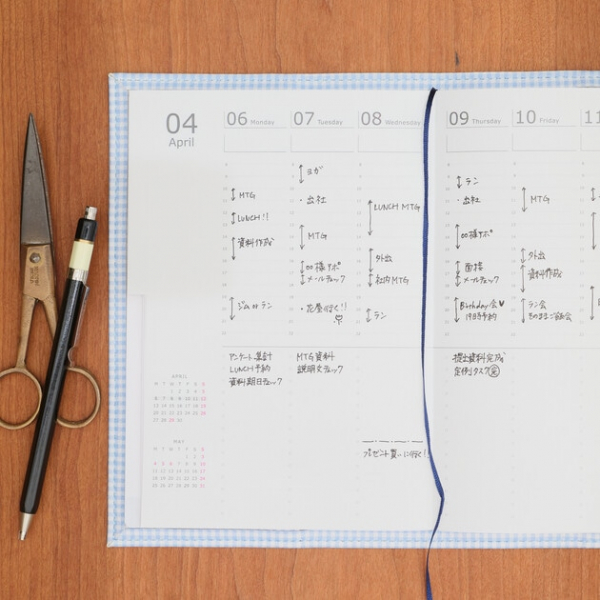 04
April
06 Monday
07 Tuesday
08 Wednesday
09 Thursday
10 Friday
11
MTG
LUNCH!!
資料作成
ジム or ラン
アンケート集計
LUNCH予約
資料期日チェック
ヨガ
・出社
MTG
○○様アポ
メールチェック
・花屋行く!!
MTG資料
説明文チェック
LUNCH MTG
外出
社内MTG
ラン
プレゼント買いに行く!
ラン
・出社
○○様アポ
面接
メールチェック
Birthday会♥
19時予約
提出資料完了
定例タスク
MTG
外出
資料作成
ラン会
そのままご飯会
APRIL
MAY